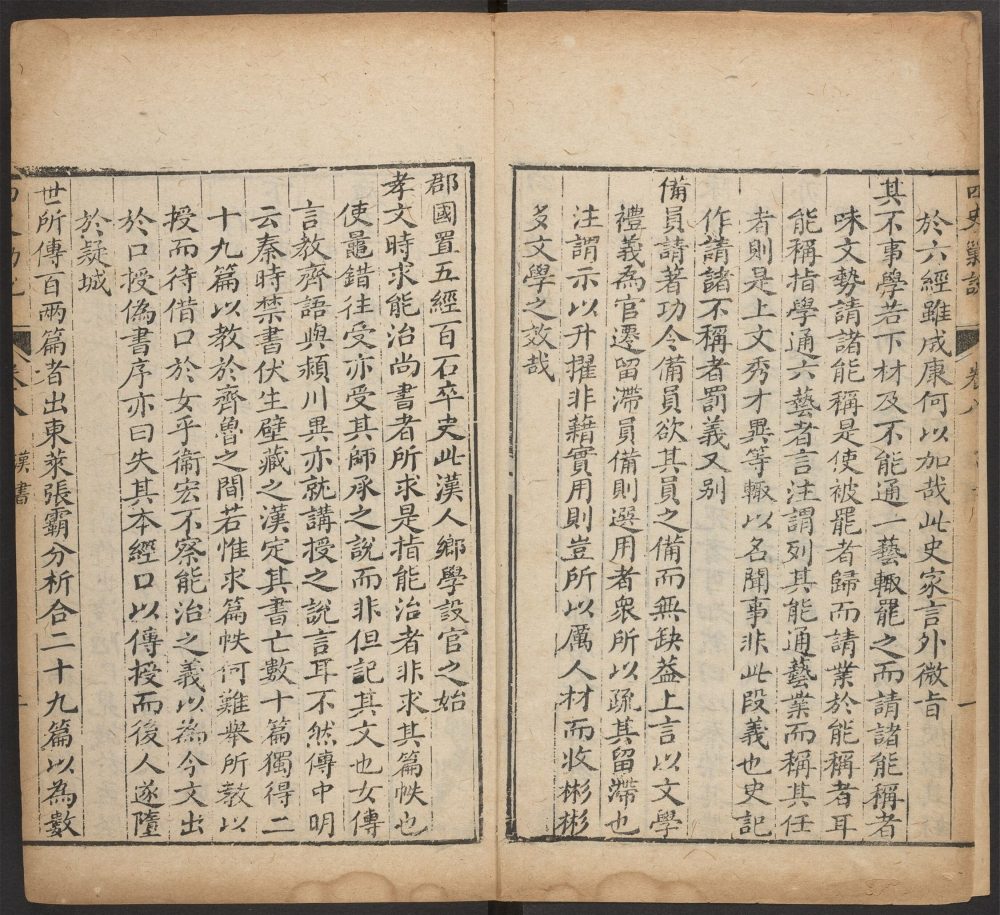 四史勦說 卷八
於六經雖成康何以加哉此史家言外微旨
其不事學若下材及不能通一藝輙罷之而請諸能稱者
味文勢請諸能稱是使被罷者歸而請業於能稱者耳
能稱指學通六藝者言注謂列其能通藝業而稱其任
者則是上文秀才異等輙以名聞事非此段義也史記
作請諸不稱者罰義又別
備員請著功令備員欲其員之備而無缺葢上言以文學
禮義為官遷留滯員備則選用者衆所以疏其留滯也
注謂示以升擢非藉實用則豈所以厲人材而收彬彬
多文學之效哉
郡國置五經百石卒史此漢人鄉學設官之始
孝文時求能治尚書者所求是指能治者非求其篇帙也
使鼂錯往受亦受其師承之說而非但記其文也女傳
言教齊語與潁川異亦就講授之說言耳不然傳中明
云秦時禁書伏生壁藏之漢定其書亡數十篇獨得二
十九篇以教於齊魯之間若惟求篇帙何難舉所教以
授而待借口於女乎衞宏不察能治之義以為今文出
於口授偽書序亦曰失其本經口以傳授而後人遂墮
於疑城
世所傳百兩篇者出東萊張霸分析合二十九篇以為數
卷八 漢書